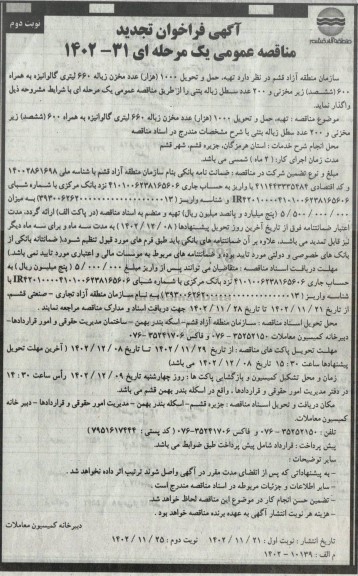 نوبت دوم
آگهی فراخوان تجدید
مناقصه عمومی یک مرحله ای ۳۱-۱۴۰۲
سازمان منطقه آزاد قشم در نظر دارد تهیه، حمل و تحویل ۱۰۰۰ (هزار) عدد مخزن زباله ۶۶۰ لیتری گالوانیزه به همراه
۶۰۰ (ششصد) زیر مخزنی و ۲۰۰ عدد سطل زباله بتنی را از طریق مناقصه عمومی یک مرحله ای با شرایط مشروحه ذیل
واگذار نماید.
موضوع مناقصه: تهیه، حمل و تحویل ۱۰۰۰ (هزار) عدد مخزن زباله ۶۶۰ لیتری گالوانیزه به همراه ۶۰۰ (ششصد) زیر
مخزنی و ۲۰۰ عدد سطل زباله بتنی با شرح مشخصات مندرج در اسناد مناقصه
محل انجام شرح خدمات: استان هرمزگان، جزیره قشم، شهر قشم
مدت زمان اجرای کار: (۲ ماه) شمسی می باشد
مبلغ و نوع تضمین شرکت در مناقصه: ضمانت نامه بانکی بنام سازمان منطقه آزاد قشم با شناسه ملی ۱۴۰۰۲۸۶۱۶۹۸
و کد اقتصادی ۴۱۱۴۴۳۳۳۵۲۸۴ یا واریز به حساب جاری ۴۱۰۱۰۰۶۲۳۸۱۶۵۶۰۶ نزد بانک مرکزی با شماره شبای
و شناسه واریز (
۵/۵۰۰/۰۰۰/۰۰۰ (پنج میلیارد و پانصد میلیون ریال) تهیه و منضم به اسناد مناقصه (در پاکت الف) ارائه گردد، مدت
اعتبار ضمانتنامه فوق از تاریخ آخرین روز تحویل پیشنهادها (۱۴۰۲/۱۲/۰۸) به مدت سه ماه و برای سه ماه دیگر
نیز قابل تمدید می باشد، علاوه بر آن ضمانتنامه های بانکی باید طبق فرم های مورد قبول تنظیم شود. (ضمانتنامه بانکی از
بانک های خصوصی و دولتی مورد تایید بوده و ضمانتنامه های مربوط به موسسات مالی و اعتباری مورد تایید نمی باشد.)
مهلت دریافت اسناد مناقصه: متقاضیان می توانند پس از واریز مبلغ ۵/۰۰۰/۰۰۰ (پنج میلیون ریال) به
حساب جاری ۴۱۰۱۰۰۶۲۳۸۱۶۵۶۰۶ نزد بانک مرکزی با شماره شبای
شناسه واریز ( به نام سازمان منطقه آزاد تجاری - صنعتی قشم،
از تاریخ ۱۴۰۲/۱۱/۲۱ تا تاریخ ۱۴۰۲/۱۱/۲۸ جهت دریافت اسناد و مدارک مناقصه مراجعه نمایند.
محل تحویل اسناد مناقصه: سازمان منطقه آزاد قشم- اسکه بندر بهمن - ساختمان مدیریت حقوقی و امور قراردادها-
دبیرخانه کمیسیون معاملات ۳۵۲۵۲۱۵۰-۰۷۶ فاکس ۳۵۲۴۱۷۰۶-۰۷۶
مهلت تحویل پاکت های مناقصه: از تاریخ ۱۴۰۲/۱۱/۲۹ تا تاریخ ۱۴۰۲/۱۲/۰۸ (آخرین مهلت تحویل
پیشنهادها ساعت ۱۵:۳۰ تاریخ ۱۴۰۲/۱۲/۰۸ می باشد)
زمان و محل تشکیل کمیسیون و بازگشایی پاکت ها: روز چهارشنبه تاریخ ۱۴۰۲/۱۲/۰۹ رأس ساعت ۱۴:۳۰
در دفتر مدیریت امور حقوقی و قراردادها، واقع در اسکله بندر بهمن قشم می باشد.
مکان دریافت و تحویل اسناد مناقصه: جزیره قشم- اسکله بندر بهمن - مدیریت امور حقوقی و قراردادها - دبیر خانه
کمیسیون معاملات
تلفن: ۳۵۲۵۲۱۵۰-۰۷۶ و فاکس ۳۵۲۴۱۷۰۶-۰۷۶ (کد پستی: ۷۹۵۱۶۱۷۴۴۴)
پیش پرداخت: قرارداد شامل پیش پرداخت طبق ضوابط می باشد.
سایر توضیحات:
- به پیشنهاداتی که پس از انقضای مدت مقرر در آگهی واصل شوند ترتیب اثر داده نخواهد شد.
- سایر اطلاعات و جزئیات مربوطه در اسناد مناقصه مندرج است.
- تضمین حسن انجام کار در موضوع این مناقصه لحاظ خواهد شد.
- هزینه هر نوبت انتشار آگهی به عهده برنده مناقصه خواهد بود.
دبیرخانه کمیسیون معاملات
تاریخ انتشار: نوبت اول: ۱۴۰۲/۱۱/۲۱ نوبت دوم: ۱۴۰۲/۱۱/۲۵
م الف: ۱۰۱۳۹-۱۴۰۲